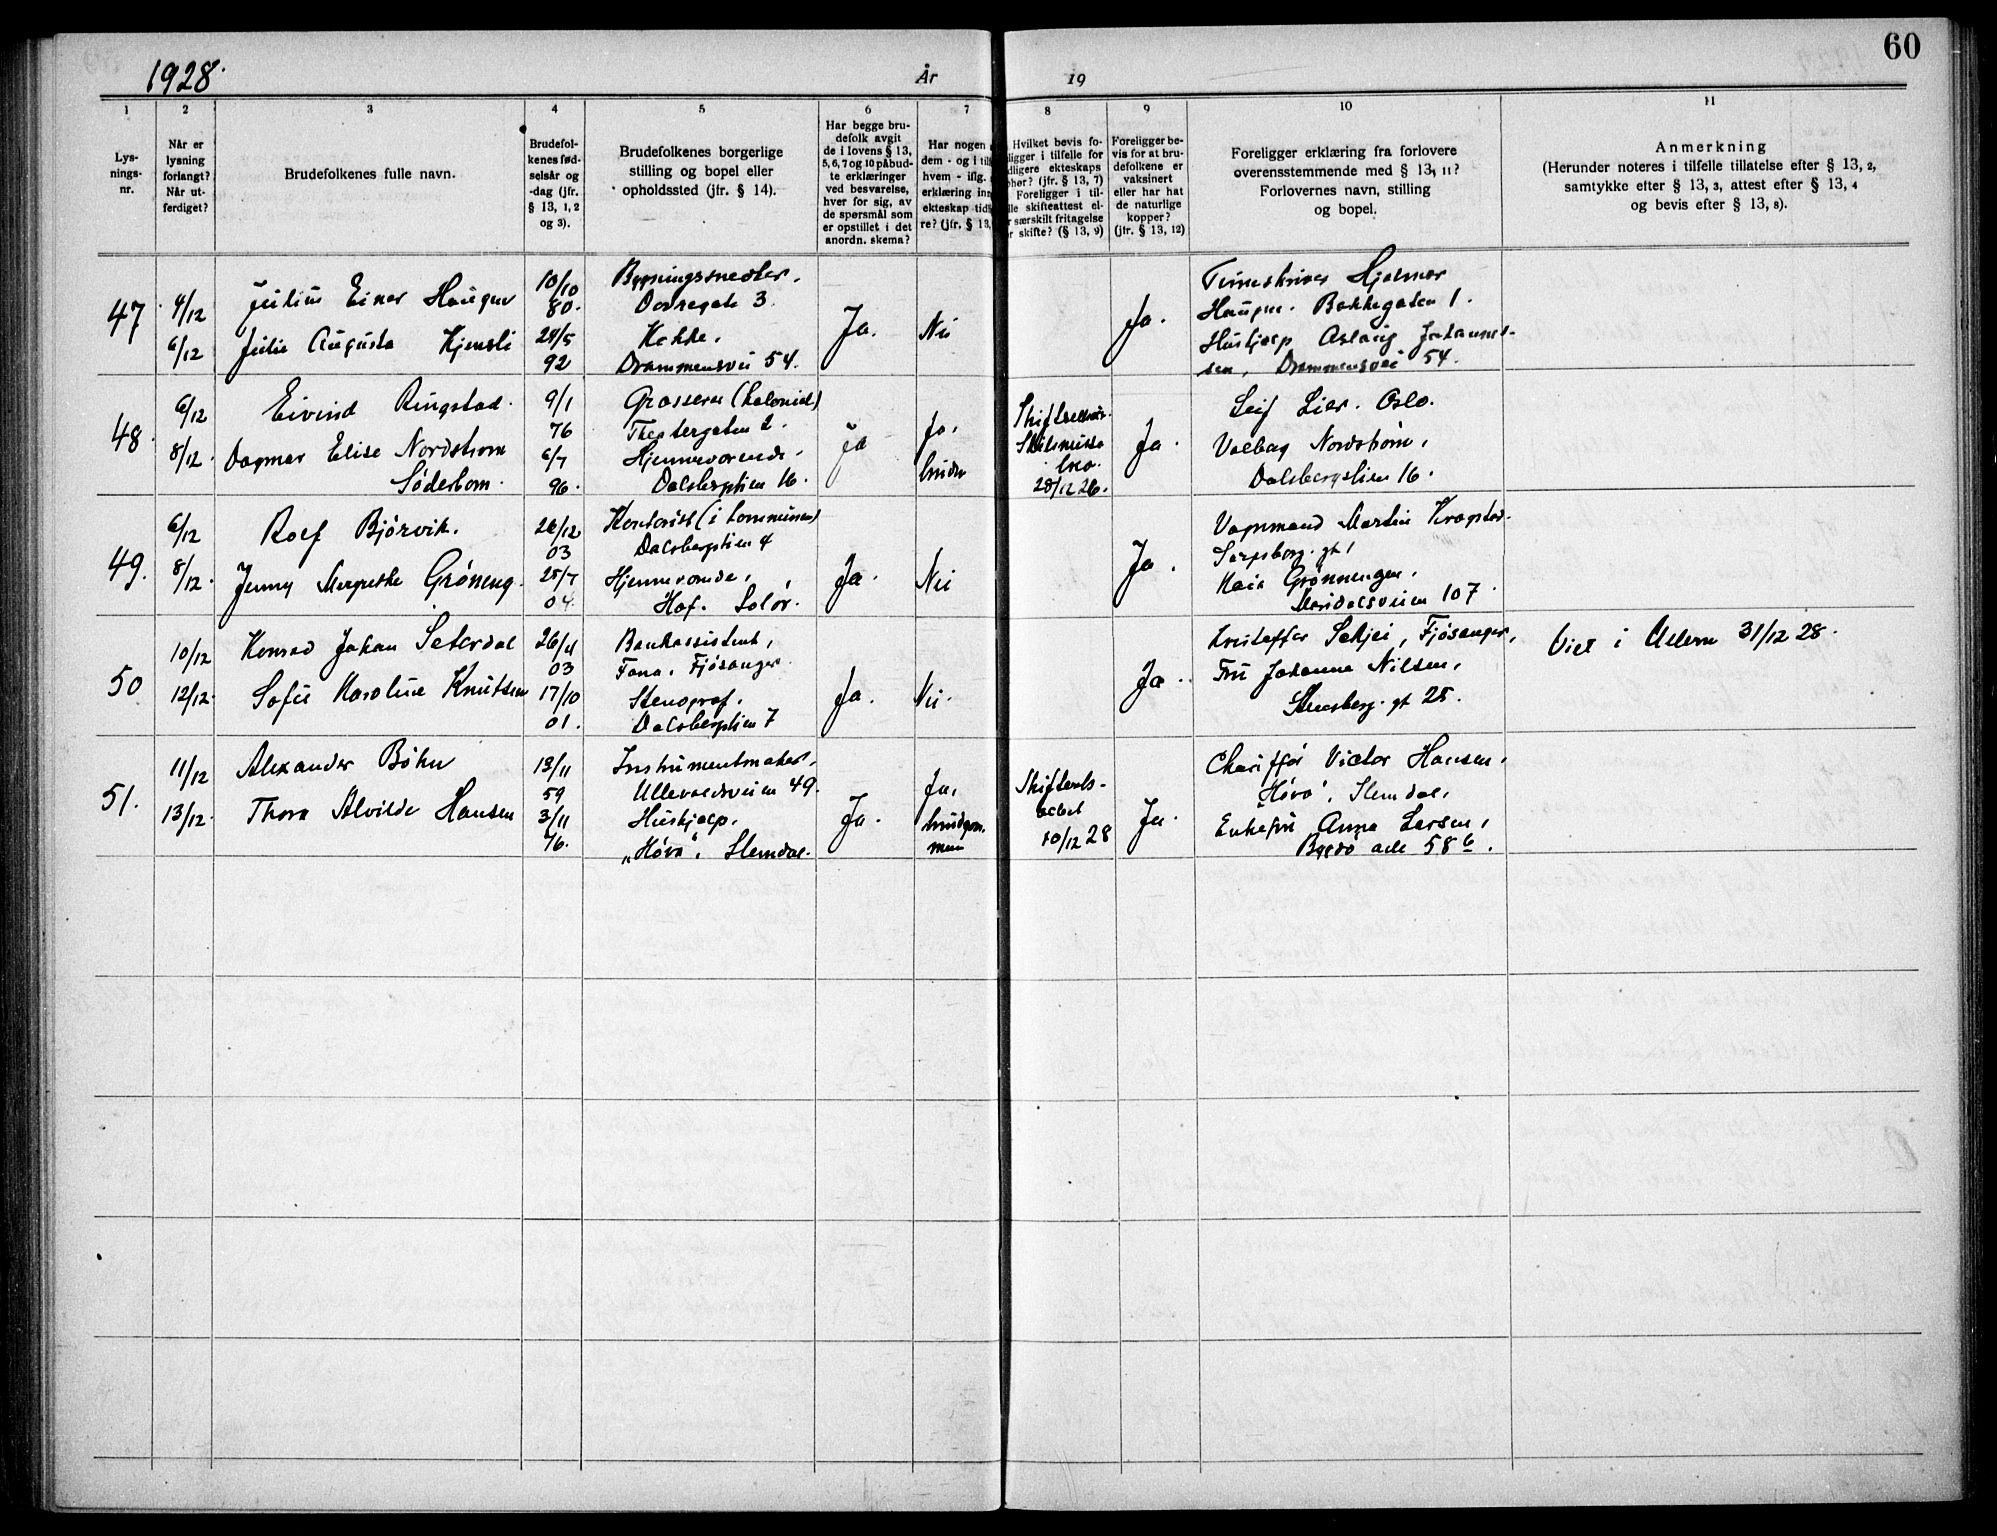 60
1928.
År
19
1
2
3
4
5
6
7
8
9
10
11
Lys-
nings-
nr.
Når er
lysning
forlangt?
Når ut-
ferdiget?
Brudefolkenes fulle navn.
Brudefol-
kenes fød-
selsår og
-dag (jfr.
§ 13, 1, 2
og 3).
Brudefolkenes borgerlige
stilling og bopel eller
opholdssted (jfr. § 14).
Har begge bru-
defolk avgit
de i lovens § 13,
5, 6, 7 og 10 påbud-
te erklæringer
ved besvarelse,
hver for sig, av
de spørsmål som
er opstillet i det
anordn. skema?
Har nogen
dem - og i til
hvem - iflg.
erklæring inn
ekteskap tidl
re? (jfr. § 13,
Hvilket bevis fo-
ligger i tilfelle for
dligere ekteskaps
phør? (jfr. § 13, 7)
Foreligger i til-
lle skifteattest el-
r særskilt fritagelse
r skifte? (§ 13, 9)
Foreligger be-
vis for at bru-
defolkene er
vaksinert
eller har hat
de naturlige
kopper?
(jfr. § 13, 12)
Foreligger erklæring fra forlovere
overensstemmende med § 13, 11?
Forlovernes navn, stilling
og bopel.
Anmerkning
(Herunder noteres i tilfelle tillatelse efter § 13, 2,
samtykke efter § 13, 3, attest efter § 13, 4
og bevis efter § 13, 8).
47
4/12
6/12
Julius Einar Haugen
Julie Augusta Hjemli
10/10
80.
24/5
92
Bygningssnedker.
Dovregate 3.
Kokke.
Drammensvei 54.
Ja.
Nei
Ja.
Hjalmar
Haugen. Bakkegaten 1.
Hushjelp Aslaug Johannes-
sen, Drammensvei 54.
48.
6/12
8/12.
Eivind Ringstad.
Dagmar Elise Nordstrom
Søderbom.
9/1
76
6/7
96.
Grosserer (kolonial)
Theatergaten 2.
Hjemmeværende.
Dalsbergstien 16.
Ja
Ja,
bruden
Skilsmisse
28/12 26.
Ja.
Leif Lier. Oslo.
Valborg Nordstrøm,
Dalsbergstien 16.
49.
6/12
8/12.
Rolf Bjørvik.
Jenny Margrethe Grøneng.
26/12
03
25/7
04.
Kontorist (i kommunen)
Dalsbergstien 4
Hjemmeværende,
Hof. Solør.
Ja.
Nei
Ja.
Vognmand Martin Kragstad.
Sarpsborg. gt 1
Maia Grønnengen,
Maridalsveien 107.
50
10/12
12/12.
Konrad Johan Seterdal
Sofie Karoline Knutsen
26/4
03
17/10
01.
Bankassistent,
Fana, Fjøsanger.
Stenograf,
Dalsbergstien 7
Ja.
Nei.
Ja.
Kristoffer Fjøsanger,
Fru Johanne Nilsen,
Stensberg. gt 25.
Viet i Ullern 31/12 28.
51.
11/12
13/12.
Alexander Bøhn
Thora Alvilde Hansen
13/11
59
3/11
76.
Instrumentmaker,
Ullevoldsveien 49.
Hushjelp.
„Høva", Slemdal.
Ja.
Ja,
brudgom-
men
Skifteretts-
attest
10/12 28
Ja.
Chauffør Victor Hansen,
„Høva", Slemdal,
Enkefru Anna Larsen,
Bygdø alle 58 b.